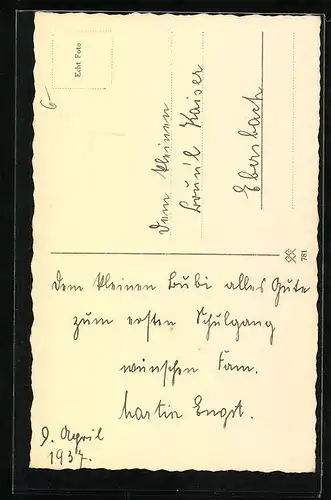 Echt Foto
6-
Dem kleinen
Kaiser
Ebersbach
781
Dem kleinen Bubi alles Gute
zum ersten Schulgang
wünschen Fam.
Martin Engst.
9. April
1937.